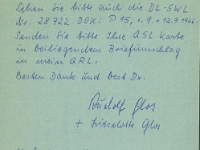 Sehen Sie bitte auch die DL-SWL
No. 28722 DOK: P 15, 1.9. + 12.9.1966.
Senden Sie bitte Ihre QSL Karte
in beiliegendem Briefumschlag
in mein QRL.
Besten Dank und best Dx.
Rudolf Glos
+ Lieselotte Glos